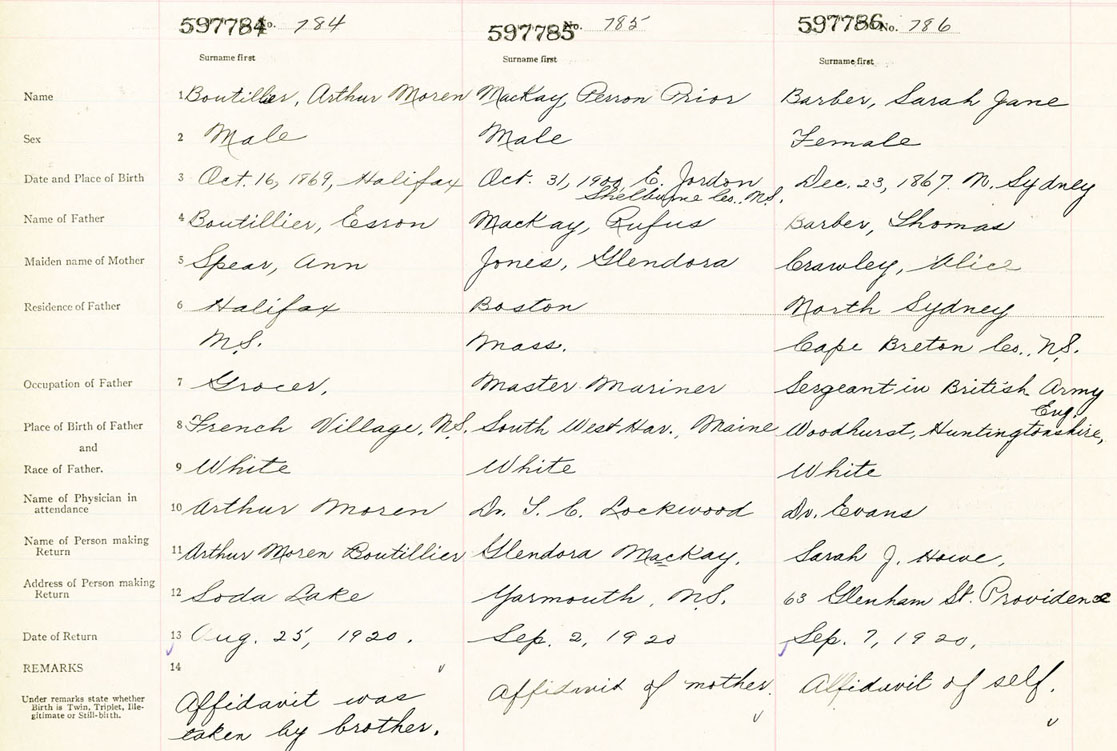 597784 No. 784 597785 No. 785 597786 No. 786
Surname first Surname first Surname first
Name 1 Boutilier, Arthur Moren MacKay, Perron Prior Barber, Sarah Jane
Sex 2 Male Male Female
Date and Place of Birth 3 Oct. 16, 1869, Halifax Oct. 31, 1900, E. Jordon Dec. 23, 1867. N. Sydney
Shelburne Co. N.S.
Name of Father 4 Boutillier, Esron MacKay, Rufus Barber, Thomas
Maiden name of Mother 5 Spear, Ann Jones, Glendora Crawley, Alice
Residence of Father 6 Halifax Boston North Sydney
N.S. Mass. Cape Breton Co., N.S.
Occupation of Father 7 Grocer, Master Mariner Sergeant in British Army
Place of Birth of Father 8 French Village, N.S. South West Har., Maine Woodhurst, Huntingtonshire, Eng.
and
Race of Father. 9 White White White
Name of Physician in
attendance 10 Arthur Moren Dr. T. C. Lockwood Dr. Evans
Name of Person making
Return 11 Arthur Moren Boutillier Glendora MacKay. Sarah J. Howe,
Address of Person making
Return 12 Soda Lake Yarmouth, N.S. 63 Glenham St. Providence
Date of Return 13 Aug. 25, 1920. Sep. 2, 1920 Sep. 7, 1920,
REMARKS 14
Under remarks state whether
Birth is Twin, Triplet, Ille-
gitimate or Still-birth.
Affidavit was Affidavit of mother. Affidavit of self.
taken by brother.